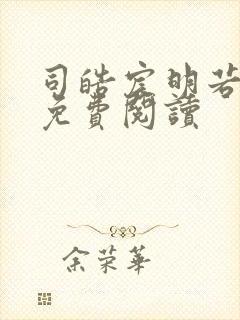 司皓宸明若
免費閱讀
余荣華